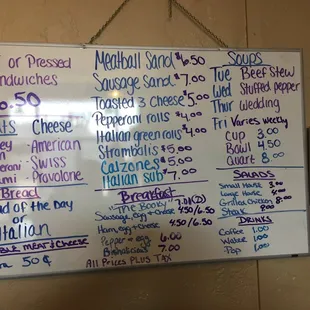 or Pressed
ndwiches
.50
ats Cheese
ey - American
- Swiss
mi - Provolone
Bread
d of the day
or
Italian
meat & cheese
50¢
Meatball Sand $6.50
Sausage Sand $7.00
Toasted 3 Cheese $5.00
Pepperoni rolls $4.00
Italian green rolls $4.00
Strombolis $5.00
Calzones $5.00
Italian sub $7.00
Breakfast
"The Booky"
Sausage, egg + cheese 4.50/6.50
Ham, egg + cheese 4.50/6.50
Pepper + egg 6.00
7.00
All Prices PLUS TAX
Soups
Tue Beef Stew
Wed Stuffed pepper
Thur Wedding
Fri Varies weekly
Cup 3.00
Bowl 4.50
Quart 8.00
SALADS
Small House 3.00
Large House
Grilled Chicken 8.00
Steak
DRINKS
Coffee 1.00
Water 1.00
Pop 1.00